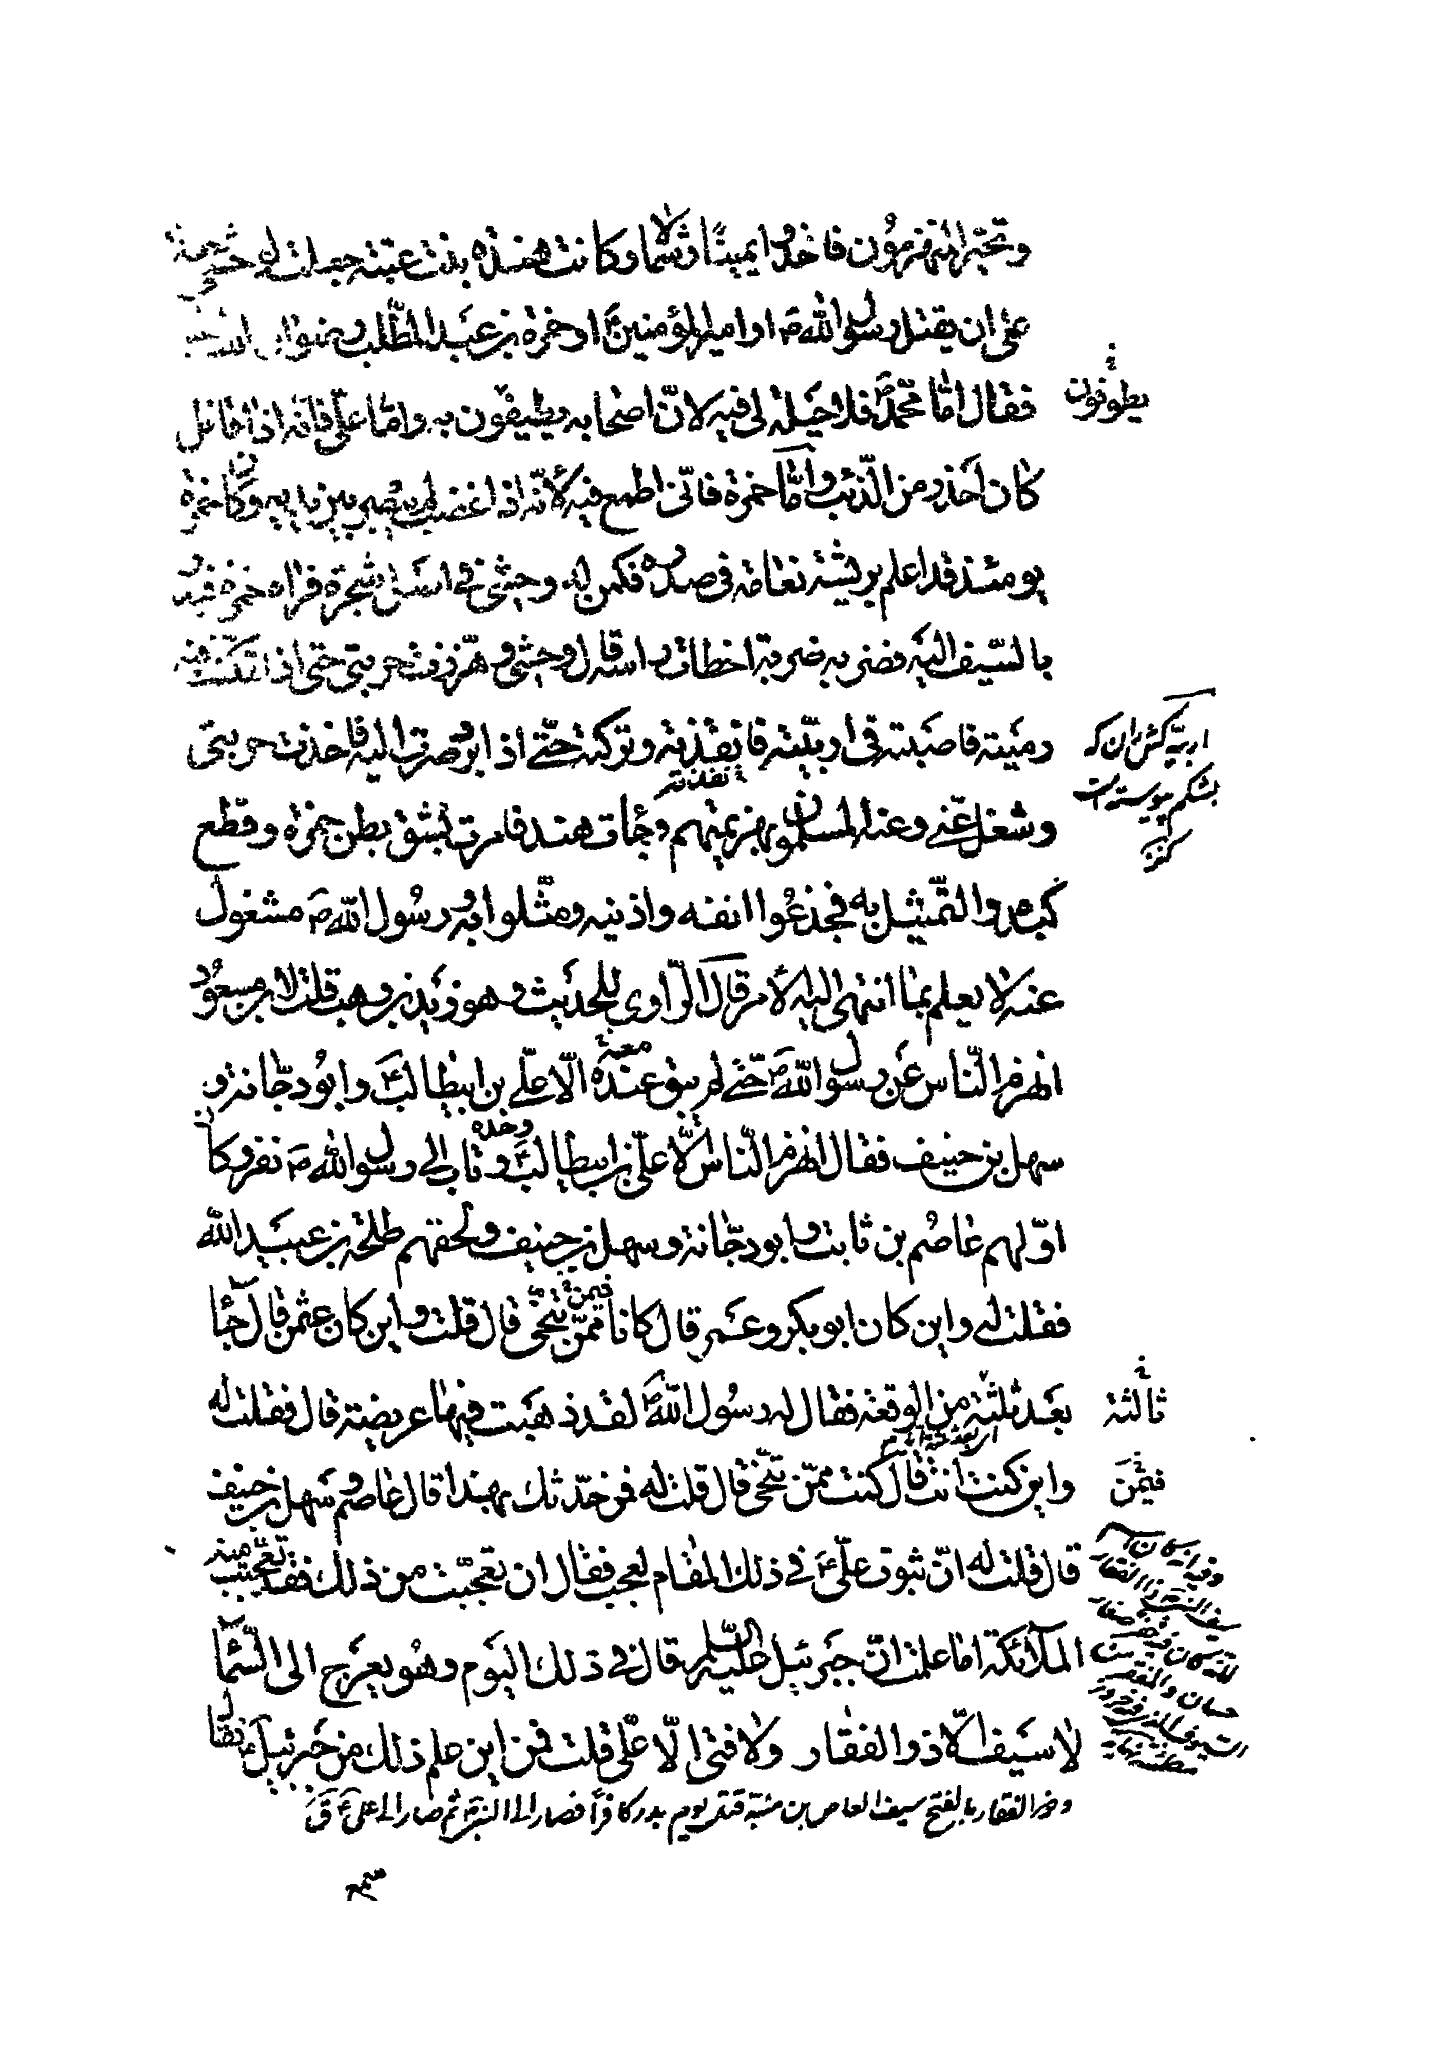 وتحيّر المنهزمون فاخذوا يمينًا وشمالا وكانت هنده بنت عتبة جعلت لوحشي
على ان يقتل رسول الله ص او امير المؤمنين ع او حمزة بن عبد المطّلب رضوان الله
فقال امّا محمّد ص فلا حيلة لي فيه لانّ اصحابه يطيفون به وامّا عليّ فانّه اذا قاتل
يطوفون
كان احذر من الذّئب وامّا حمزة فانّي اطمع فيه لأنّه اذا غضب لم يبصر بين يديه وكان حمزة
يومئذ قد اعلم بريشة نعامة في صدره فكمن له وحشي في اصل شجرة فراه حمزة فبدر
بالسّيف اليه فضربه ضربة اخطات راسه قال وحشي وهززت حربتي حتى اذا تمكّنت منه
رميته فاصبته في اربيّته فانفذته وتركته حتّى اذا برد صرت اليه فاخذت حربتي
اربيّه كش ران كه
بشكم پيوسته است
كنز
وشغل عنّي وعنه المسلمون بهزيمتهم وجاءت هند فامرت بشق بطن حمزة وقطع
كبده والتّمثيل به فجذعوا انفه واذنيه ومثّلوا به ورسول الله ص مشغول
عنه لا يعلم بما انتهى اليه الأمر قال الرّاوي للحديث وهو زيد بن وهب قلت لابن مسعود
انهزم النّاس عن رسول الله ص حتّى لم يبق معه عنده الّا عليّ بن ابيطالب ع وابو دجانة و
سهل بن حنيف فقال انهزم النّاس الّا عليّ بن ابيطالب ع وحده وثاب الى رسول الله ص نفر وكان
اوّلهم عاصم بن ثابت وابو دجّانة وسهل بن حنيف ولحقهم طلحة بن عبيد الله
فقلت له واين كان ابو بكر وعمر قال كانا ممّن فيمن تنحّى قال قلت واين كان عثمن قال جاء
بعد ثلثة من الوقعة فقال له رسول الله ص لقد ذهبت فيها عريضة قال فقلت له
ثالثة
واين كنت انت قال كنت ممّن تنحّى قال قلت له فمن حدّثك بهذا قال عاصم وسهل بن حنيف
فيمن
قال قلت له انّ ثبوت عليّ ع في ذلك المقام لعجب فقال ان تعجبّت من ذلك فقد تعجّبت منه
الملائكة اما علمت انّ جبرئيل عليه السلام قال في ذلك اليوم وهو يعرج الى السّماء
لا سيف الّا ذو الفقار ولا فتى الّا عليّ قلت فمن اين علم ذلك من جبرئيل ع فقال
وذو الفقار بالفتح سيف العاص بن منبّه قتل يوم بدر كافرًا فصار الى النبيّ ص ثم صار الى علي ع ق